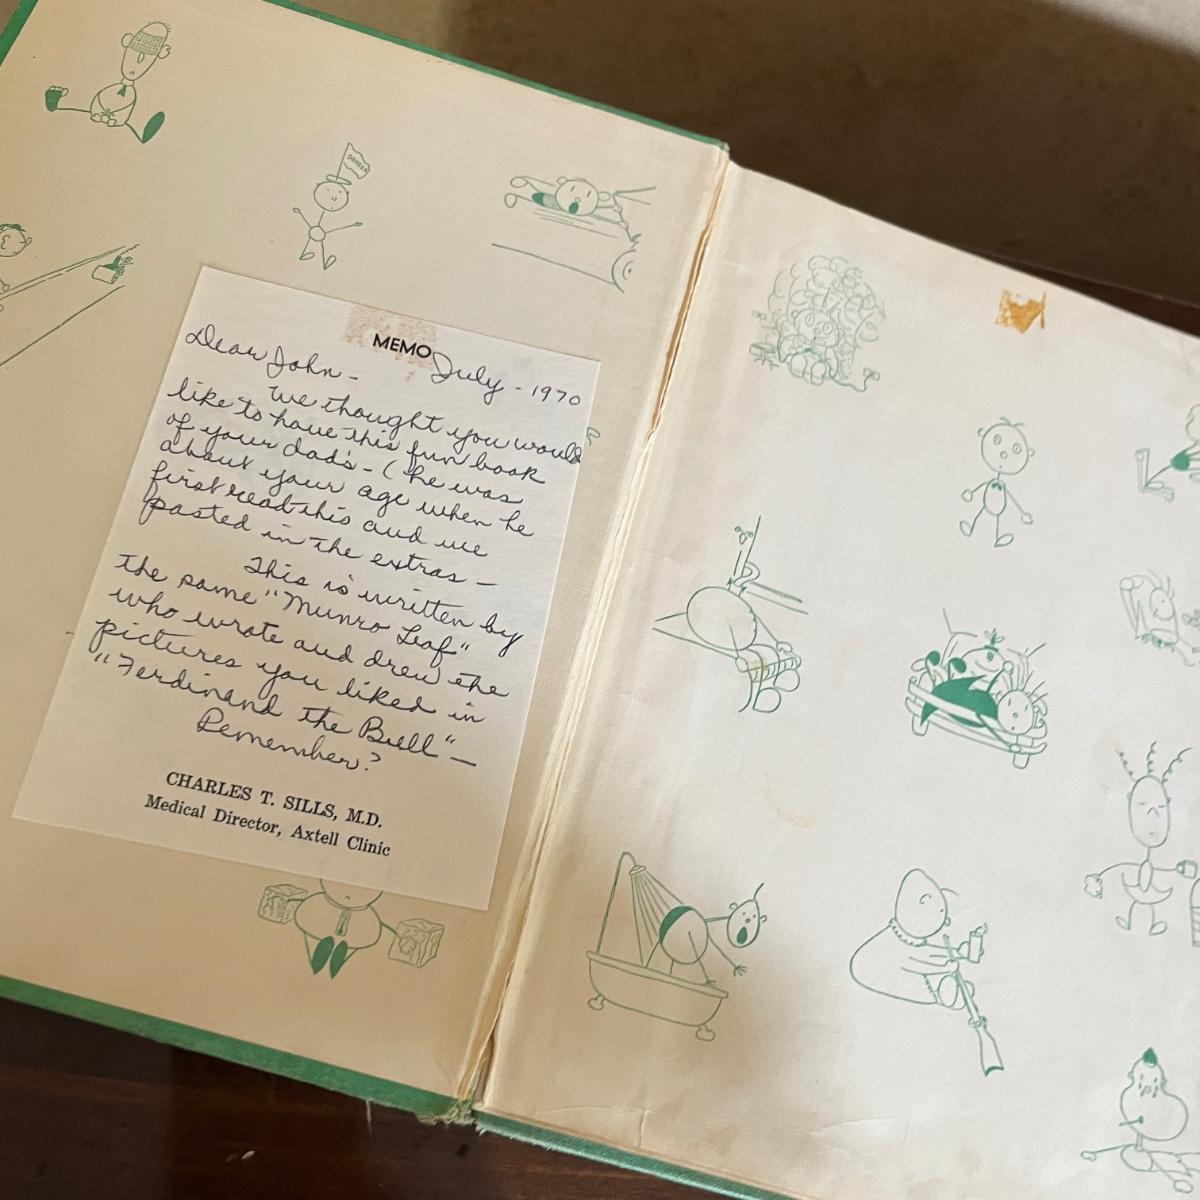 DANGER
MEMO
July - 1970
Dear John -
We thought you would
like to have this fun book
of your dad's - (he was
about your age when he
first read this and we
pasted in the extras -
This is written by
the same "Munro Leaf"
who wrote and drew the
pictures you liked in
"Ferdinand the Bull" -
Remember?
CHARLES T. SILLS, M.D.
Medical Director, Axtell Clinic